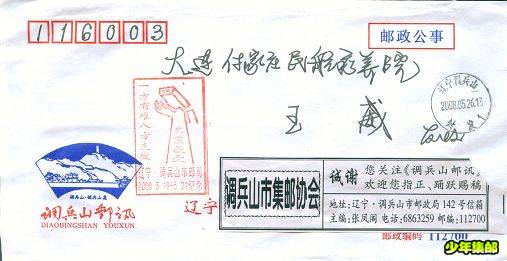 116003
邮政公事
大连付家庄民航疗养院
王 威
辽宁调兵山
2008.05.26.18
一方有难八方支援
辽宁·调兵山市邮局
2008.5.19-5.21纪念
调兵山·调兵山夏
调兵山邮讯
DIAOBINGSHAN YOUXUN
辽宁
调兵山市集邮协会
诚谢 您关注《调兵山邮讯》
欢迎您指正、踊跃赐稿
地址:辽宁·调兵山市邮政局142号信箱
主编:张凤阁 电话:6863259 邮编:112700
邮政编码 112700
少年集邮